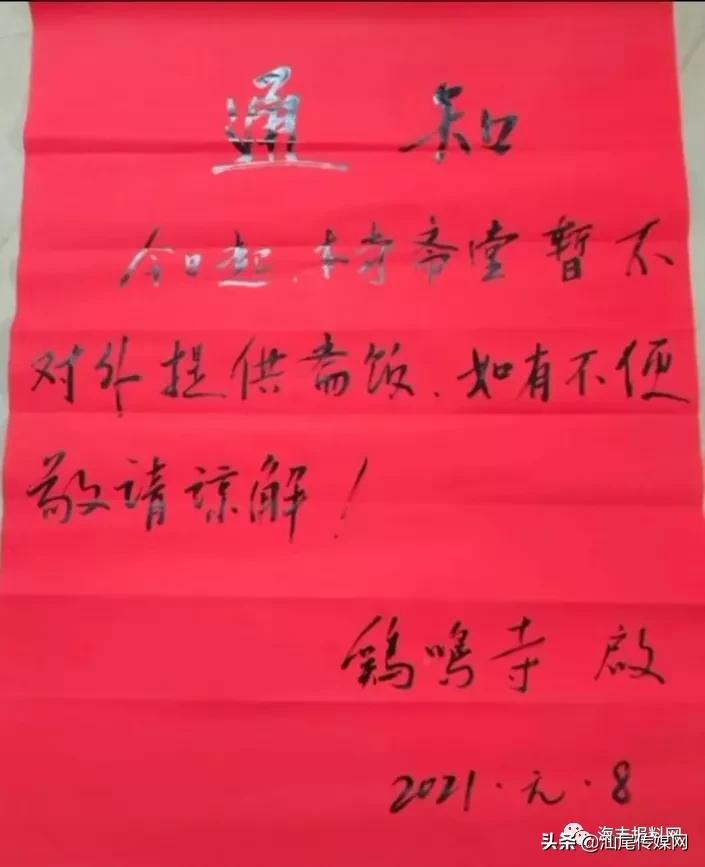 通知
今日起、本寺斋堂暂不
对外提供斋饭、如有不便
敬请谅解！
鷄鳴寺 啟
2021.元.8
海丰报料网
头条@汕尾传媒网